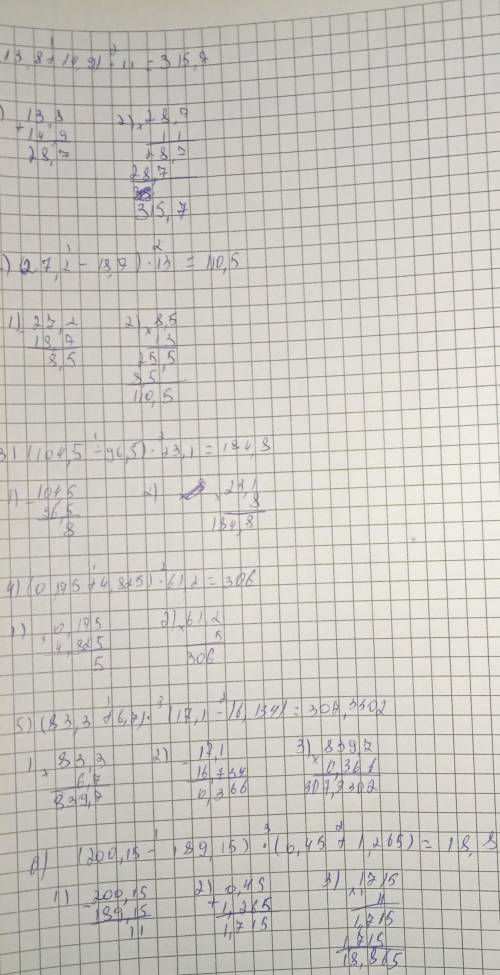 13,8 + 14,9) · 11 = 315,7
13,8
+ 14,9
28,7
2) × 28,7
11
28,7
28,7
315,7
) 27,2 - 18,7) · 13 = 110,5
1) - 27,2
18,7
8,5
2) × 8,5
13
25,5
8,5
110,5
3) (104,5 - 96,5) · 23,1 = 184,8
1) - 104,5
96,5
8
2) × 23,1
8
184,8
4) (0,175 + 4,825) · 61,2 = 306
1) + 0,175
4,825
5
2) × 61,2
5
306
5) (83,3 + 6,7) · (17,1 - 16,734) = 307,3302
1 × 83,3
6,7
839,7
2) - 17,1
16,734
0,366
3) × 8397
0,366
307,3302
6) (200,15 - 189,15) · (0,45 + 1,265) = 18,8
1) - 200,15
189,15
11
2) + 0,45
1,265
1,715
3) × 1,715
11
1,715
1,715
18,865